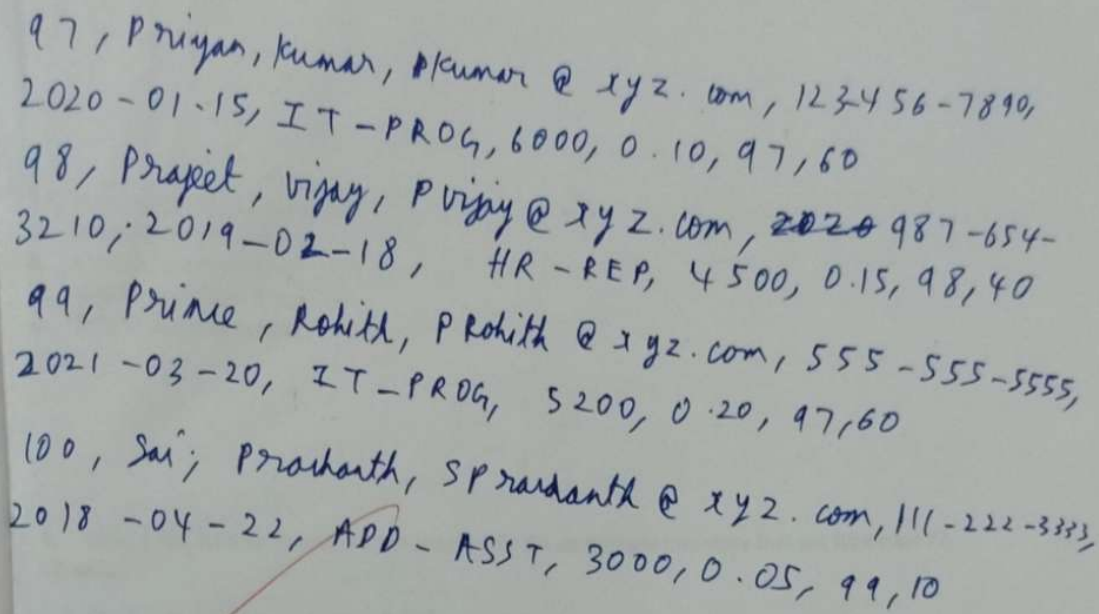 97, Priyan, Kumar, pkumar @ xyz. com, 123-456-7890,
2020-01-15, IT-PROG, 6000, 0.10, 97, 60
98, Prajeet, vijay, Pvijay @ xyz.com, 987-654-
3210, 2019-02-18, HR-REP, 4500, 0.15, 98, 40
99, Prince, Rohith, PRohith @ xyz.com, 555-555-5555,
2021-03-20, IT_PROG, 5200, 0.20, 97, 60
100, Sai, Prashanth, SPrashanth @ xyz. com, 111-222-3333,
2018-04-22, ADD-ASST, 3000, 0.05, 99, 10